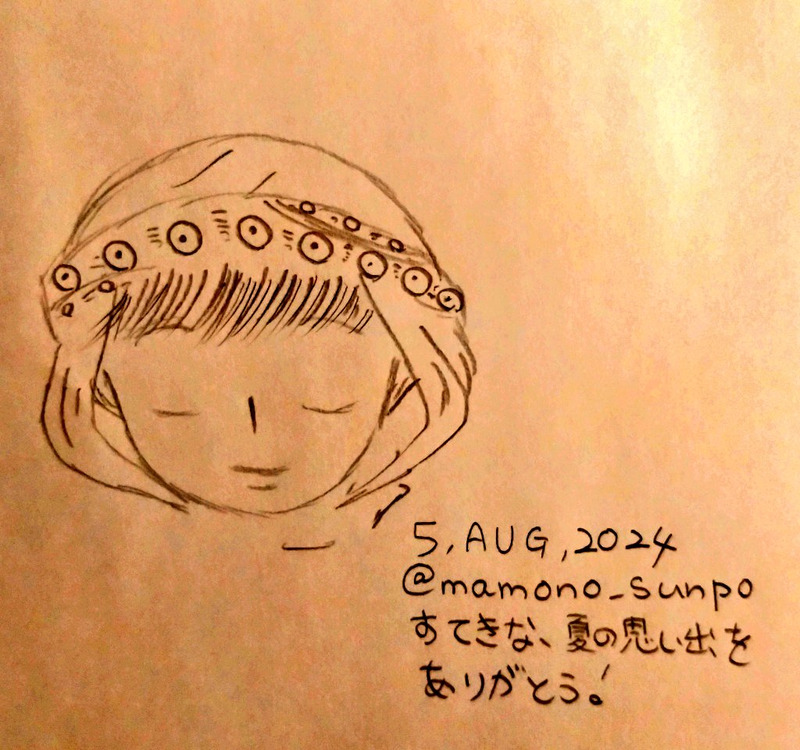 5, AUG, 2024
@mamono_sunpo
すてきな、夏の思い出を
ありがとう!